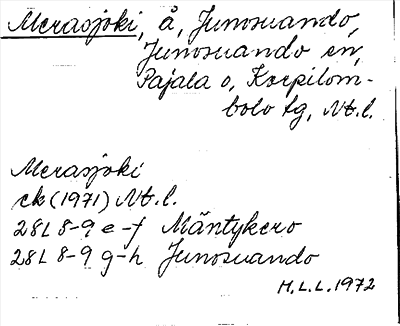 Merasjoki, å, Junosuando,
Junosuando sn,
Pajala o, Korpilom-
bolo tg, Nb.l.
Merasjoki
ek (1971) Nb.l.
28L 8-9 e-f Mäntykero
28L 8-9 g-h Junosuando
H.L.L. 1972